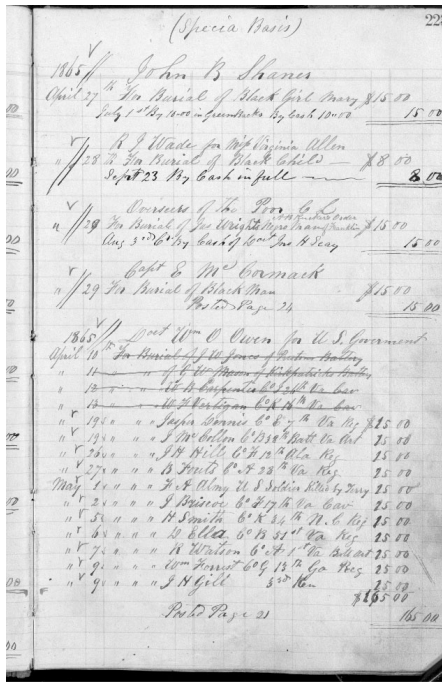 223
(Specia Basis)
1865 John R Shaner
April 27th For Burial of Black Girl Mary $15 00
July 1st By 1000 in Green Backs By Cash 10.00 15 00
R J Wade for Miss Virginia Allen
" 28 To For Burial of Black Child $8 00
Sept 23 By Cash in full 8 00
Overseers of The Poor C. L.
" 29 For Burial of Jas Wright Negro Man $15 00
Aug 3rd Cr By Cash of Jno H Seay 15 00
Capt E McCormack
" 29 For Burial of Black Man $15 00
Posted Page 24 15 00
1865 Doct Wm O Owen for U S Goverment
April 10th For Burial of J W Jones of Battery
" 11 of C W Moon of Kirkpatricks Battry
" 12 " W B Carpenter Co I 2 Va Cav
" 13 W F Co K Va Cav
" 19 " " " Jasper Co E 7th Va Reg $15 00
" 19 " " " J McCollon Co B 38th Batt Va Art 15 00
" 26 " " " J H Hill Co F 12th Ala Reg 15 00
" 27 " " " B Co A 28th Va Reg 15 00
May 1 " " " F A Almy U S Soldier Killed by Terry 25 00
" 2 " " " J Briscoe Co F 17th Va Cav 25 00
" 5 " " " H Smith Co K 34th N. C Reg 25 00
" 6 " " " D Ella Co B 51st Va Reg 25 00
" 7 " " " K Watson Co A 1st Va Batt art 25 00
" 9 " " " Wm Forrest Co G 13th Ga Reg 25 00
" 9 " " " J H Gill 3rd 25 00
$165 00
Posted Page 21 165 00